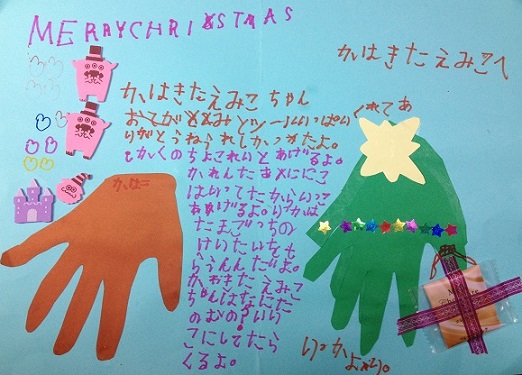 MERRYCHRISTMAS
かはきたえみこへ
かはきたえみこちゃん
おてがみとシールいっぱいくれてあ
りがとうねうれしかったよ。
しかくのちょこれいとあげるよ。
かれんだあににこ
はいってたからいっこ
あげるよ。りつかは
たまごっちの
けいたいをも
らうんだよ。
かわきたえみこ
ちゃんはなにた
のむの?いい
こにしてたら
くるよ。
りつかより。